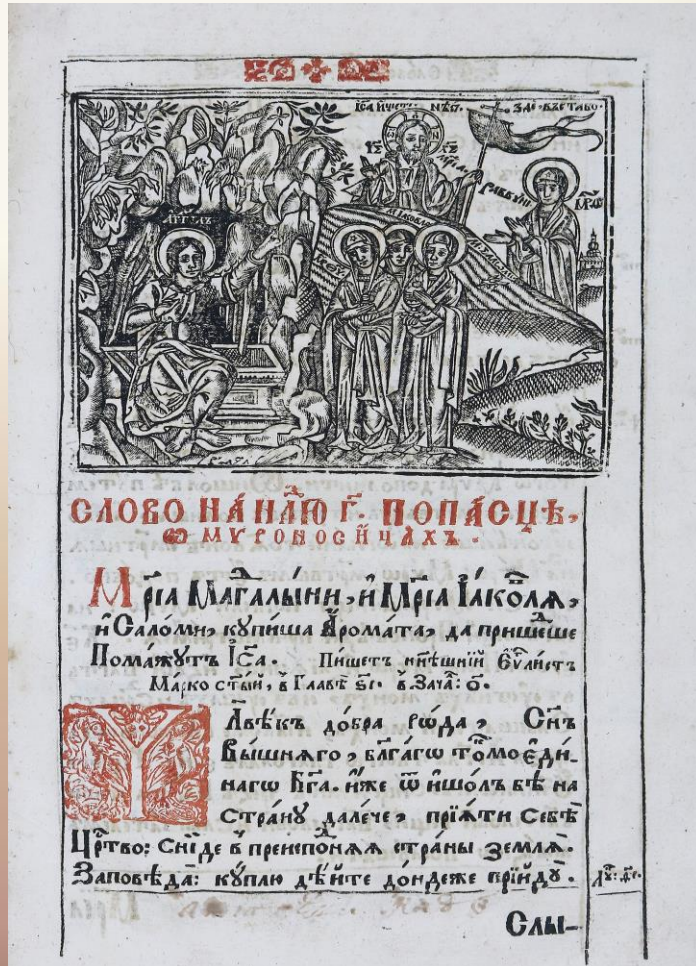 АГГЕЛЪ
СЛОВО НА́ Н҃ЛЮ Г҃. ПОПА́СЦѢ,
Ѡ МУРОНОСИ́ЧАХЪ.
Мр҃і́а Магдалы́ни, и҆ Мр҃і́а І҆а́ковля,
и҆ Саломи, купиша А҆рома́та, да прише́дше
Пома́жутъ І҆с҃а. Пишетъ нн҃ѣшній Еѵ҃листъ
Ма́рко ст҃ы́й, в҆ Главѣ̀ ѕ҃і. в҆ Зача́: о҃.
Ч Л҃вѣ́къ добра ро́да, Сн҃ъ
Вы́шняго, бл҃га́гѡ томоєди-
нагѡ Бг҃а. и҆́же ѿишо́лъ бѣ на
страну̀ дале́че, прія́ти Себѣ̀
Цр҃тво: Сни́де в҆ преисподняя страны̀ Земля̀.
Заповѣ́да: ку́плю дѣ́йте до́ндеже прійду̀.
Слы-